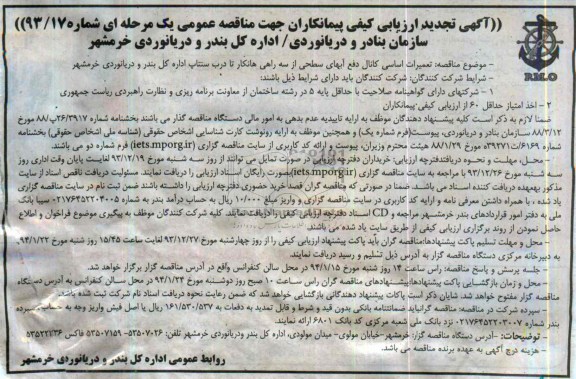 ((آگهی تجدید ارزیابی کیفی پیمانکاران جهت مناقصه عمومی یک مرحله ای شماره ۹۳/۱۷))
سازمان بنادر و دریانوردی/ اداره کل بندر و دریانوردی خرمشهر
P.M.O
- موضوع مناقصه: تعمیرات اساسی کانال دفع آبهای سطحی از سه راهی هانکار تا درب سنتاپ اداره کل بندر و دریانوردی خرمشهر
- شرایط شرکت کنندگان: شرکت کنندگان باید دارای شرایط ذیل باشند:
۱ - شرکتهای دارای گواهینامه صلاحیت با حداقل پایه ۵ در رشته ساختمان از معاونت برنامه ریزی و نظارت راهبردی ریاست جمهوری
۲ - اخذ امتیاز حداقل ۶۰ از ارزیابی کیفی پیمانکاران
ضمنا لازم به ذکر است کلیه پیشنهاد دهندگان موظف به ارایه تاییدیه عدم بدهی به امور مالی دستگاه مناقصه گذار می باشند بخشنامه شماره ۲۶/۳۹۱۷/پ/۸۸ مورخ
۸۸/۳/۱۲ سازمان بنادر و دریانوردی، پیوست(فرم شماره یک) و همچنین موظف به ارایه رونوشت کارت شناسایی اشخاص حقوقی (شناسه ملی اشخاص حقوقی) بخشنامه
شماره ۶۱۶۹/ت۳۹۲۷۱ه مورخ ۸۸/۱/۲۹ هیئت محترم وزیران، پیوست و ارائه کد کاربری از سایت مناقصه گزاری (iets.mporg.ir) فرم شماره دو می باشند.
- محل، مهلت و نحوه دریافت دفترچه ارزیابی: خریداران دفترچه ارزیابی در صورت تمایل می توانند از روز سه شنبه مورخ ۹۳/۱۲/۱۹ لغایت پایان وقت اداری روز
سه شنبه مورخ ۹۳/۱۲/۲۶ با مراجعه به سایت مناقصه گزاری (iets.mporg.ir) بصورت رایگان اسناد ارزیابی را دریافت نمایند. مسئولیت دریافت ناقص اسناد از سایت
مذکور بعهده دریافت کننده اسناد می باشد. ضمنا در صورتی که مناقصه گران قصد خرید حضوری دفترچه ارزیابی را داشته باشند ضمن ثبت نام در سایت مناقصه گزاری
یاد شده، با همراه داشتن معرفی نامه و ارایه کد کاربری در سایت مناقصه گزاری و واریز مبلغ ۱۰/۰۰۰ ریال به حساب درآمد بندر به شماره ۲۱۷۶۴۵۲۲۰۴۰۰۵ سیبا بانک
ملی به دفتر امور قراردادهای بندر خرمشهر مراجعه و CD اسناد دفترچه ارزیابی کیفی را دریافت نمایند. کلیه شرکت کنندگان موظف به پیگیری موضوع فراخوان و اطلاع
حاصل نمودن از روند برگزاری ارزیابی کیفی از طریق سایت یاد شده می باشند.
- محل و مهلت تسلیم پاکت پیشنهادها: مناقصه گران باید پاکت پیشنهاد ارزیابی کیفی را از روز چهارشنبه مورخ ۹۳/۱۲/۲۷ لغایت ساعت ۱۵/۴۵ روز شنبه مورخ ۹۴/۱/۲۲
به دبیرخانه مرکزی دستگاه مناقصه گزار به آدرس ذیل تسلیم و رسید دریافت نمایند.
- جلسه پرسش و پاسخ مناقصه: راس ساعت ۱۴ روز شنبه مورخ ۹۴/۱/۱۵ در محل سالن کنفرانس واقع در آدرس مناقصه گزار برگزار خواهد شد.
- محل و زمان بازگشایی پاکت پیشنهادها: پیشنهادهای مناقصه گران راس ساعت ۱۰ صبح روز دوشنبه مورخ ۹۴/۱/۲۴ در محل سالن کنفرانس به آدرس دستگاه
مناقصه گزار مفتوح خواهد شد. شایان ذکر است پاکات پیشنهاد دهندگانی بازگشایی خواهد شد که ضمن رعایت نحوه دریافت اسناد نام شرکت ثبت شده باشد.
- سپرده شرکت در مناقصه: مناقصه گران باید ضمانتنامه بانکی بدون قید و شرط و قابل تمدید به دفعات به ۱۶۱/۵۳۰/۵۳۷ ریال یا اصل فیش واریز وجه به حساب سپرده
بندر شماره ۲۱۷۶۴۵۲۲۰۳۰۰۷ نزد بانک ملی شعبه مرکزی کد بانک ۶۸۰۱ ارائه نمایند.
- توضیحات: - آدرس دستگاه مناقصه گزار: خرمشهر-خیابان مولوی- میدان مولودی، اداره کل بندر ودریانوردی خرمشهر تلفن: ۵۳۵۰۷۰۲۶- ۵۳۵۰۷۱۵۹ فاکس ۵۳۵۲۲۱۳۶
- هزینه درج آگهی به عهده برنده مناقصه می باشد.
روابط عمومی اداره کل بندر و دریانوردی خرمشهر